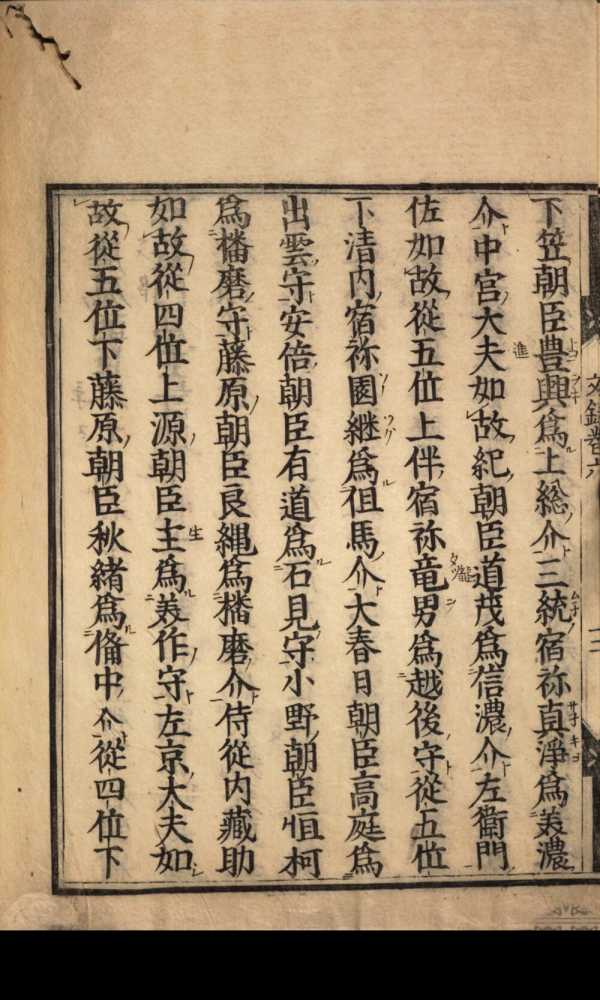 下笠朝臣豊興爲上総介三統宿祢真淨爲美濃
介中宮大夫如故紀朝臣道茂爲信濃介左衛門
佐如故從五位上伴宿祢竜男爲越後守從五位
下清内宿祢圀継爲但馬介大春日朝臣高庭爲
出雲守安倍朝臣有道爲石見守小野朝臣恒柯
爲播磨守藤原朝臣良縄爲播磨介侍從内藏助
如故從四位上源朝臣主爲美作守左京大夫如
故從五位下藤原朝臣秋緒爲備中介從四位下